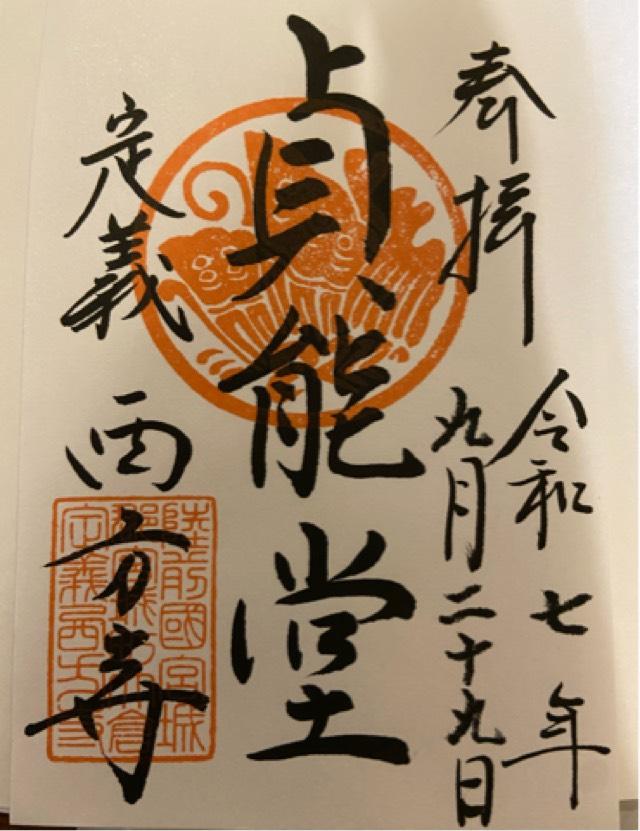 奉拝
令和七年
九月二十九日
貞能堂
定義
西方寺
陸前國宮城
定義西方寺